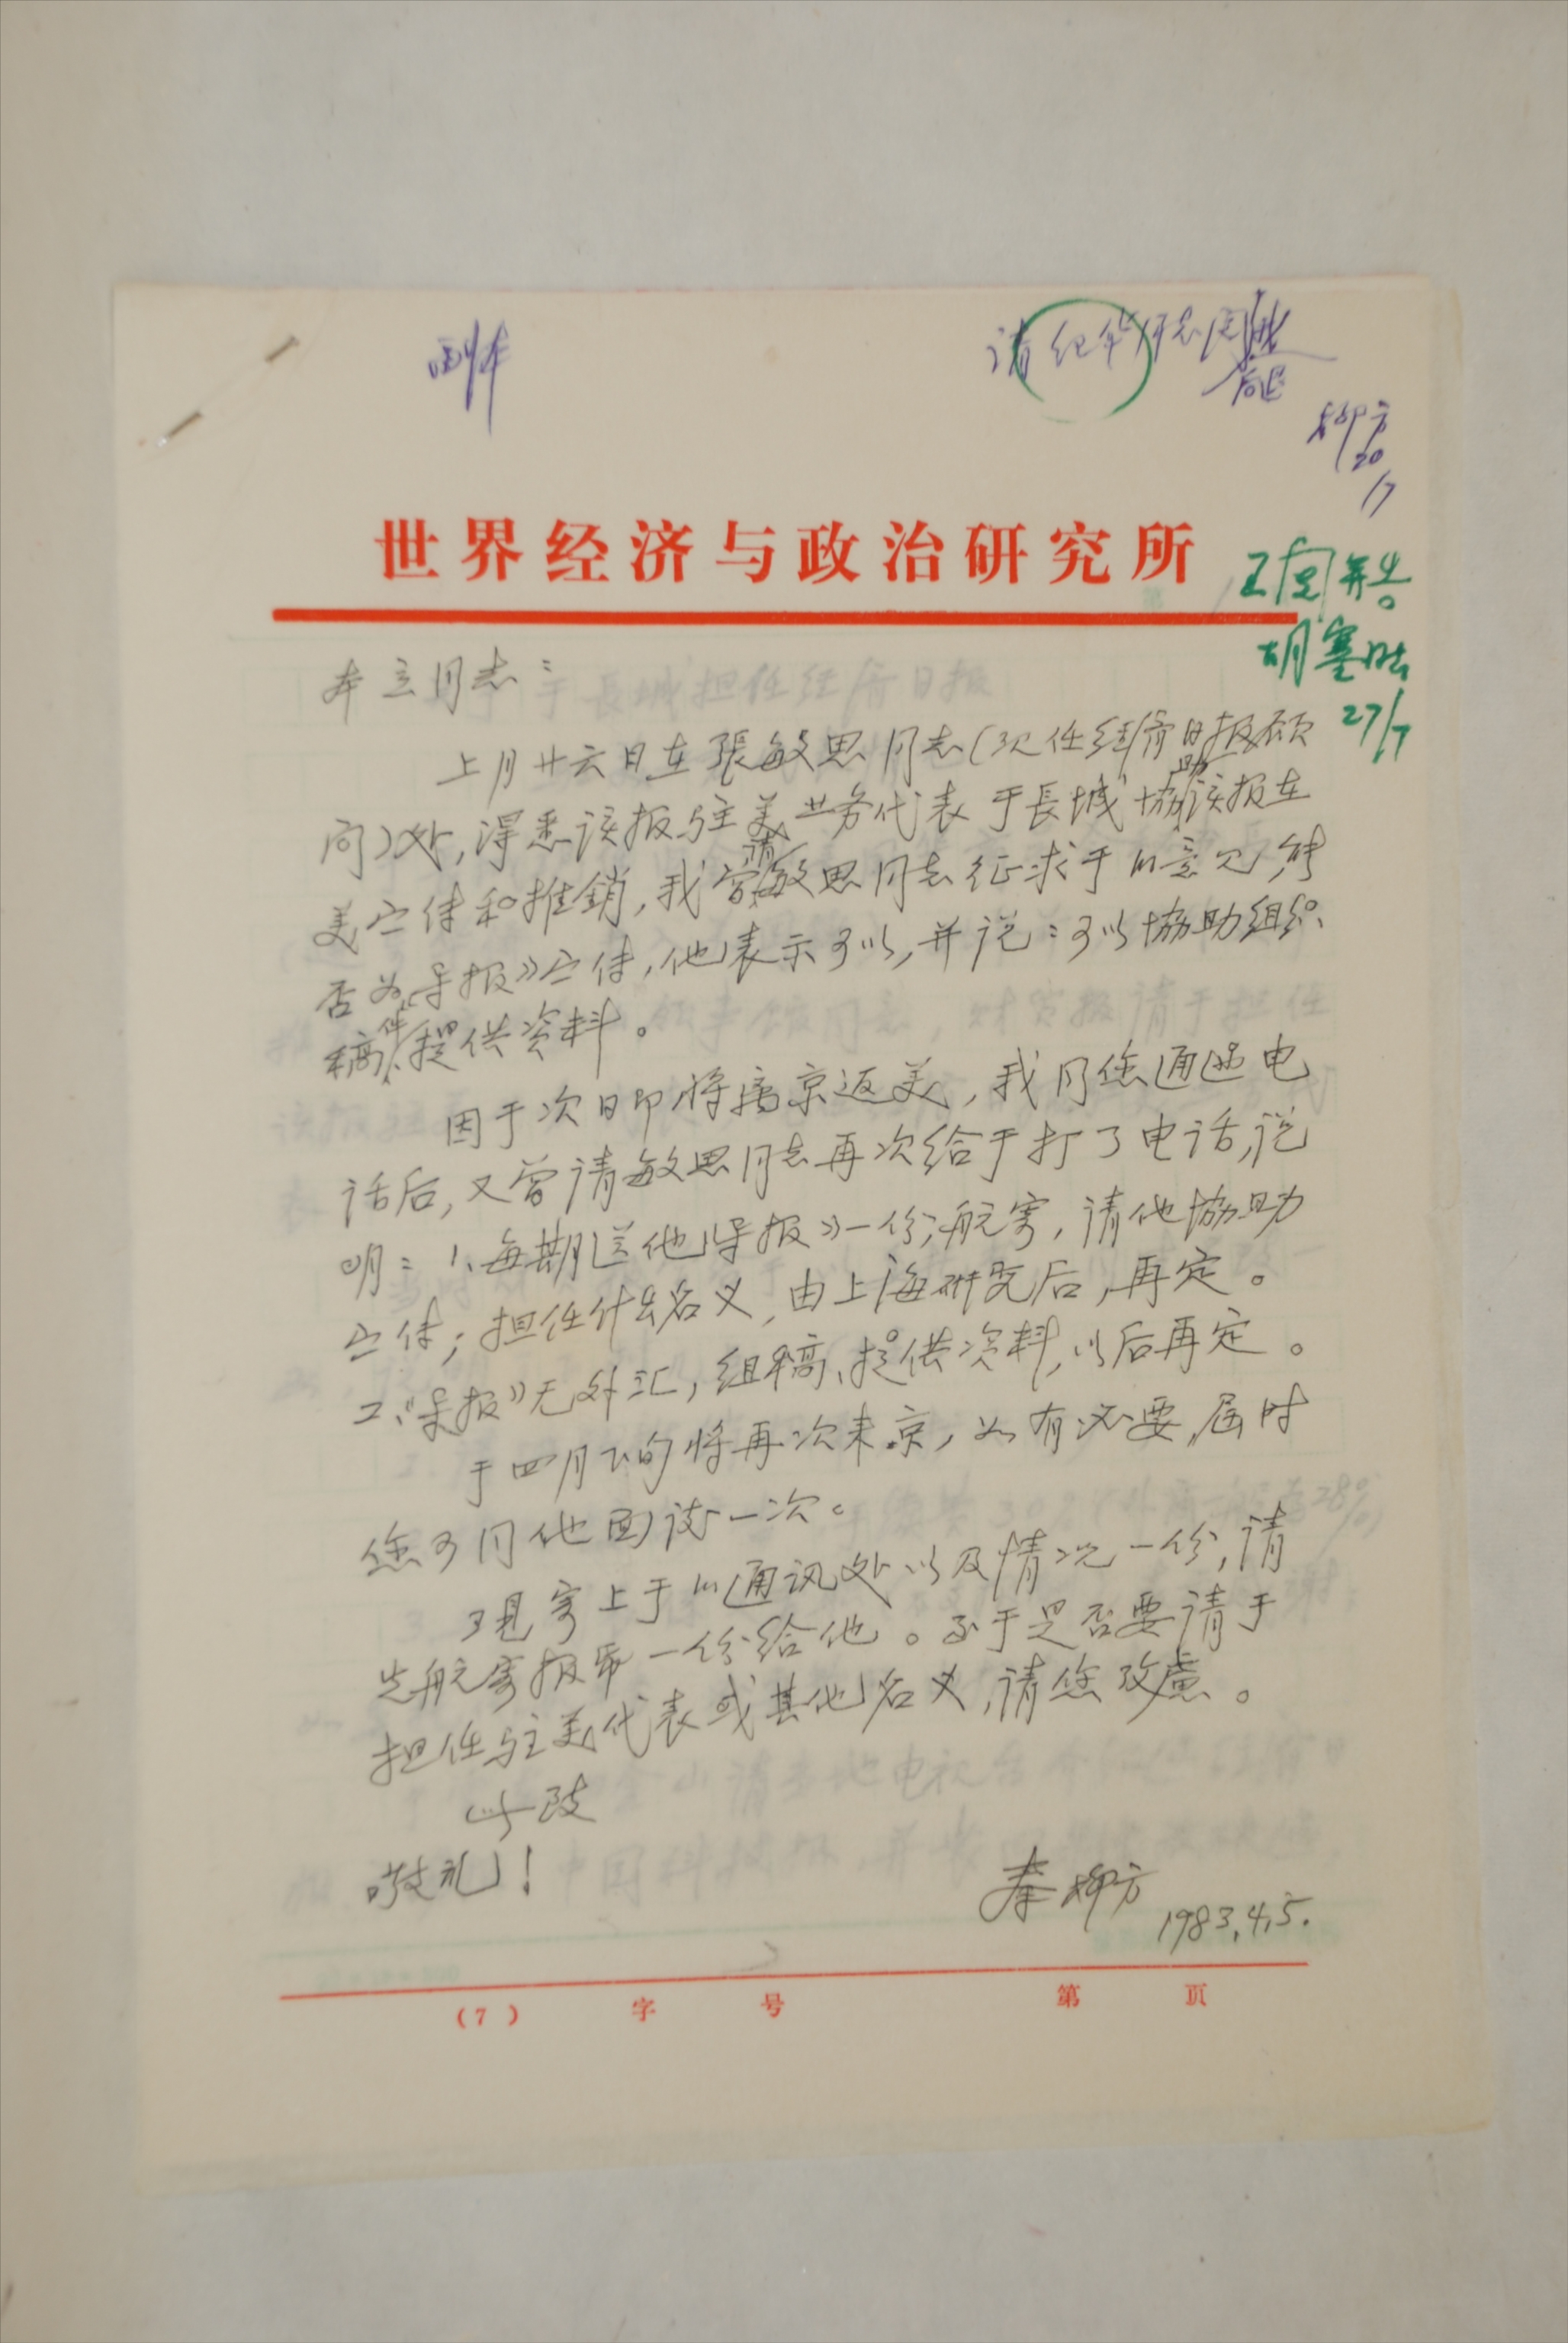 副本
请纪华同志阅
柳方
20/7
已阅
胡塞
27/7
世界经济与政治研究所
本立同志：
上月廿六日在張敏思同志（现任经济日报顾
问）处，得悉该报驻美业务代表于長城協助该报在
美宣传和推銷，我曾請敏思同志征求于的意见，能
否为《导报》宣传，他表示可以，并说：可以協助组织
稿件、提供资料。
因于次日即将离京返美，我同您通过电
话后，又曾请敏思同志再次给于打了电话，说
明：1、每期送他《导报》一份，航寄，请他協助
宣传；担任什么名义，由上海研究后，再定。
2、《导报》无外汇，组稿、提供资料，以后再定。
于四月下旬将再次来京，如有必要，届时
您可同他面谈一次。
现寄上于的通讯处以及情况一份，请
先航寄报纸一份给他。至于是否要请于
担任驻美代表或其他名义，请您考慮。
此致
敬礼！
秦柳方
1983.4.5.
（7） 字 号 第 页